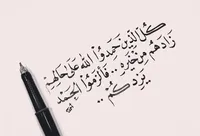 كل الذين حمدوا الله على حالهم
زادهم من خيره .. فالزموا الحمد
يزدكم ..